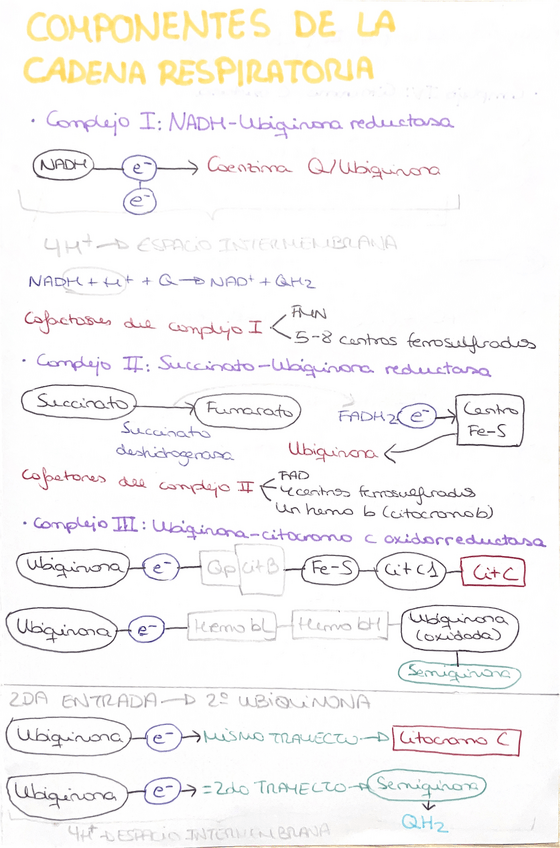 COMPONENTES DE LA
CADENA RESPIRATORIA
· Complejo I: NADH-Ubiquinona reductasa
NADH e- → Coenzima Q/Ubiquinona
e-
4H+ → ESPACIO INTERMEMBRANA
NADH + H+ + Q → NAD+ + QH2
Cofactores del complejo I < FMN
5-8 centros ferrosulfurados
· Complejo II: Succinato-Ubiquinona reductasa
Succinato → Fumarato
Succinato
deshidrogenasa
FADH2 e- → Centro
Fe-S
Ubiquinona ←
Cofactores del complejo II < FAD
4 centros ferrosulfurados
Un hemo b (citocromo b)
· Complejo III: Ubiquinona-citocromo c oxidorreductasa
Ubiquinona e- Qp Cit B Fe-S Cit C1 Cit C
Ubiquinona e- Hemo bL Hemo bH Ubiquinona
(oxidada)
Semiquinona
2DA ENTRADA → 2º UBIQUINONA
Ubiquinona e- → MISMO TRAYECTO → Citocromo C
Ubiquinona e- → = 2do TRAYECTO → Semiquinona
↓
QH2
4H+ → ESPACIO INTERMEMBRANA